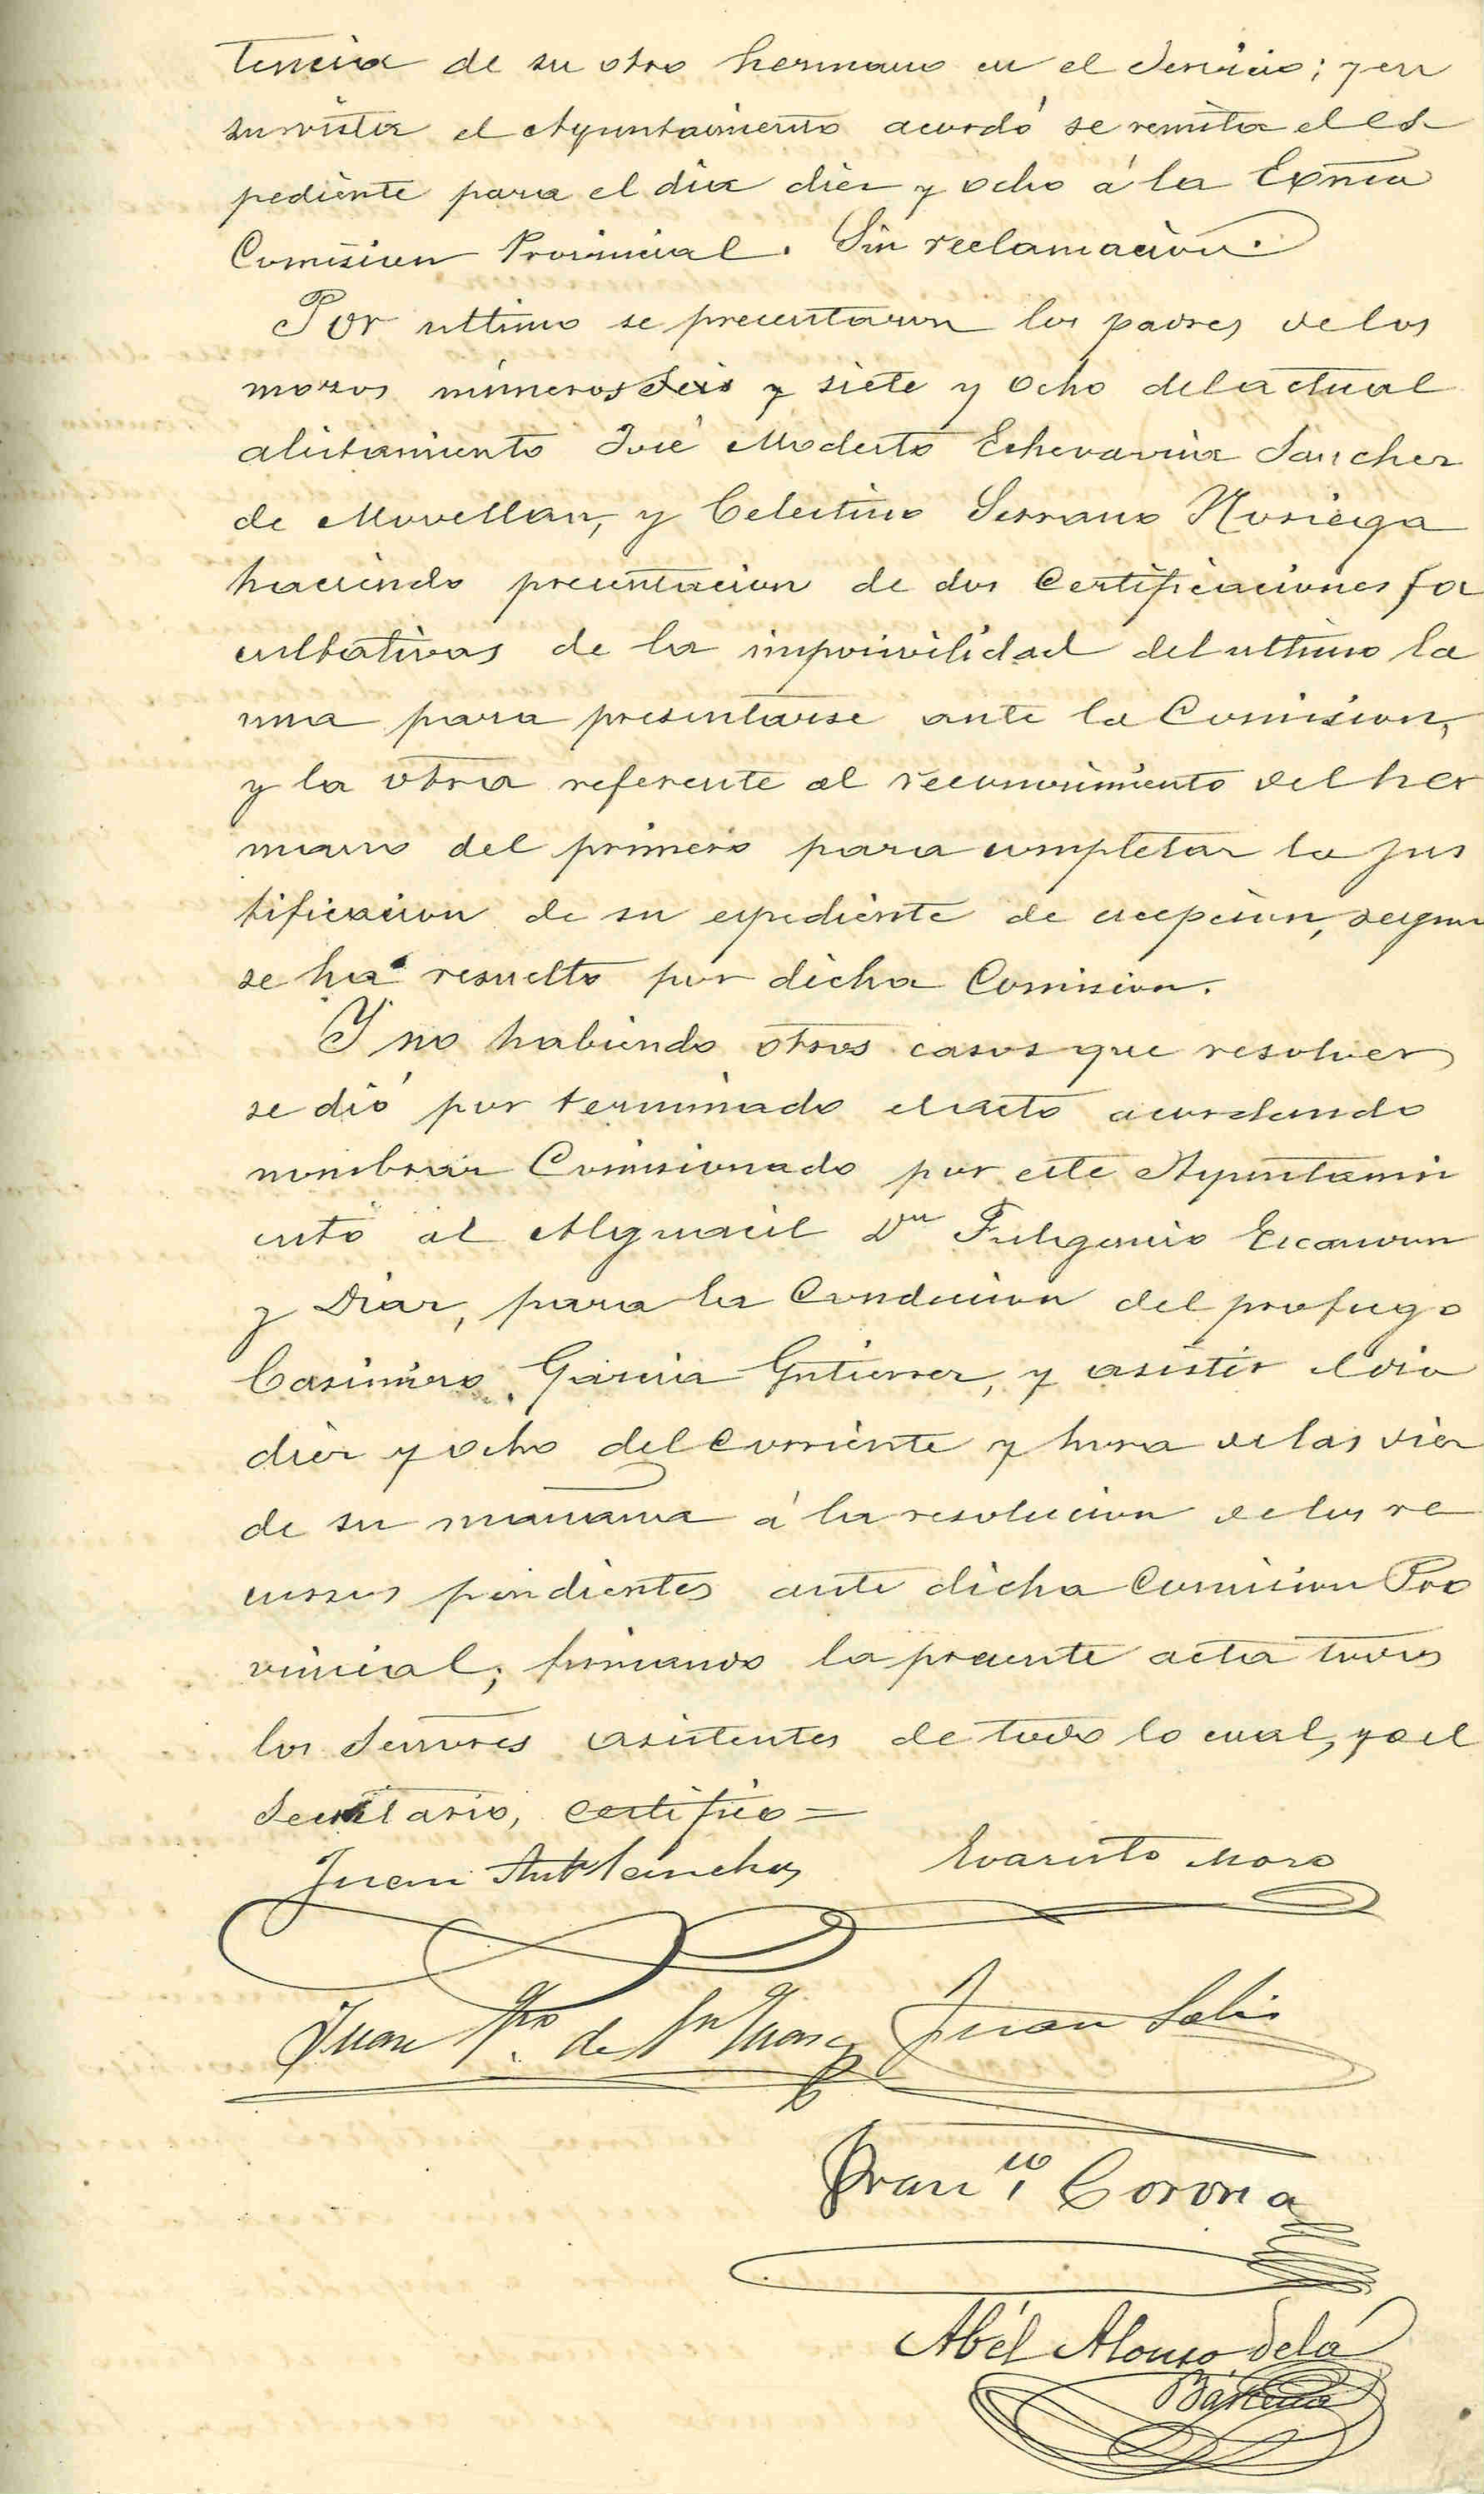 tencia de su otro hermano en el Servicio; y en
su vista el Ayuntamiento acordó se remita el es
pediente para el dia diez y ocho á la Exma
Comision Provincial. Sin reclamacion.
Por ultimo se presentaron los padres de los
mozos números Seis y siete y ocho del actual
alistamiento José Modesto Echevarria Sanchez
de Movellan, y Celestino Serrano Noriega
haciendo presentacion de dos Certificaciones fa
cultativas de la imposivilidad del ultimo la
una para presentarse ante la Comision,
y la otra referente al reconocimiento del her
mano del primero para completar la jus
tificacion de su espediente de escepcion, segun
se ha resuelto por dicha Comision.
Y no habiendo otros casos que resolver
se dió por terminado el acto acordando
nombrar Comisionado por este Ayuntami
ento al Alguacil Dn Fulgencio Escandon
y Diaz, para la Conducion del profugo
Casimiro Garcia Gutierrez, y asistir el dia
diez y ocho del Corriente y hora de las diez
de su mañana á la resolucion de los re
cursos pendientes ante dicha Comision Pro
vincial; firmando la presente acta todos
los Señores asistentes de todo lo cual, yo el
Secretario, certifico =
Juan Anto Sanchez Evaristo Mora
Juan de Sn Juan Juan Solis
Franco Corona
Abél Alonso de la
Bárcena